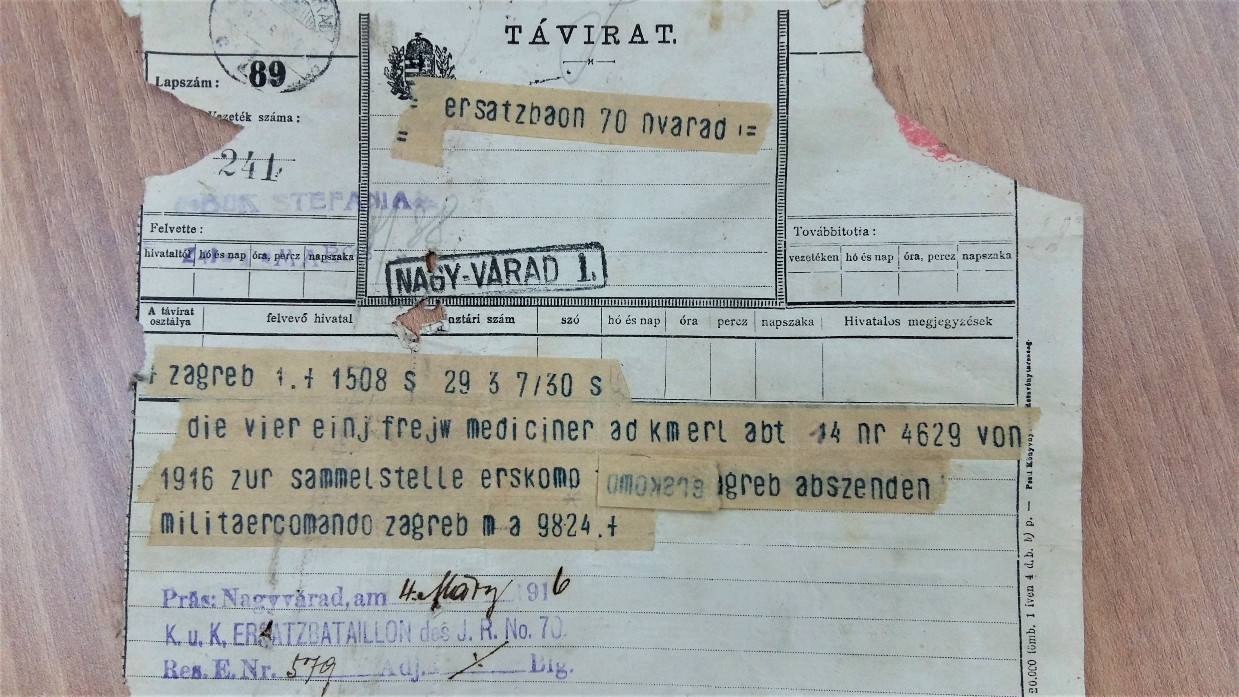 TÁVIRAT.
Lapszám: 89
= ersatzbaon 70 nvarad =
=
Vezeték száma:
241
STEFANIA
Felvette:
Továbbitotta:
hivataltól hó és nap óra, percz napszaka
vezetéken hó és nap óra, percz napszaka
NAGY-VÁRAD 1.
A távirat osztálya
felvevő hivatal
szó
hó és nap
óra
percz
napszaka
Hivatalos megjegyzések
+ zagreb 1.+ 1508 s 29 3 7/30 s
die vier einj frejw mediciner ad kmerl abt 14 nr 4629 von
1916 zur sammelstelle erskomo erskomo agreb abszenden
militaercomando zagreb m a 9824.+
Präs: Nagyvárad, am 4. März 1916
K. u. K. ERSATZBATAILLON des J. R. No. 70.
Res. E. Nr. 579 Adj. Blg.
20.000 tömb. 1 iven 4 d. b. b) p. —